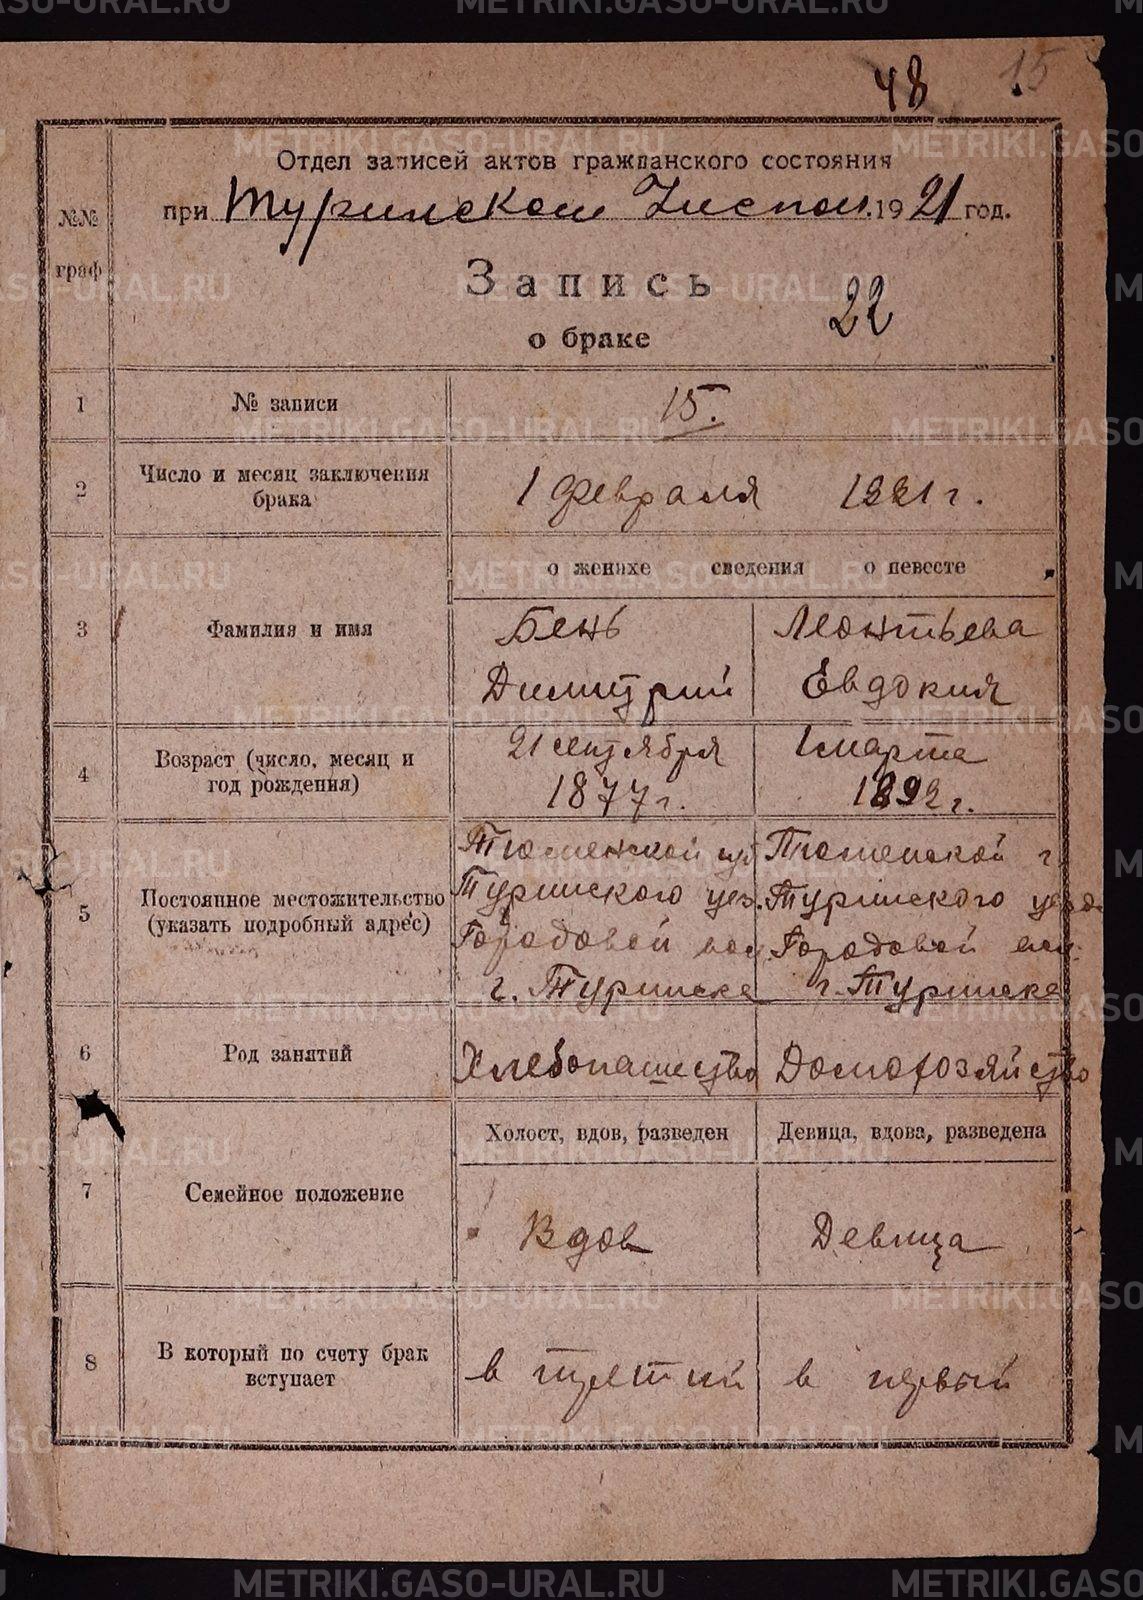 48 15
Отдел записей актов гражданского состояния
при Туринском Успом. 1921 год.
№№
граф
Запись
22
о браке
1 № записи 15.
2 Число и месяц заключения
брака
1 февраля 1921 г.
о женихе сведения о невесте
3 Фамилия и имя
Бень Леонтьева
Димитрий Евдокия
4 Возраст (число, месяц и
год рождения)
21 сентября 1 марта
1877 г. 1892 г.
5 Постоянное местожительство
(указать подробный адрес)
Тюменской губ Тюменской г.
Туринского уез. Туринского уезд.
Городовой вол. Городовой вол.
г. Туринске г. Туринске
6 Род занятий Хлебопашество Домохозяйство
Холост, вдов, разведен Девица, вдова, разведена
7 Семейное положение
Вдов Девица
8 В который по счету брак
вступает
в третий в первый
METRIKI.GASO-URAL.RU